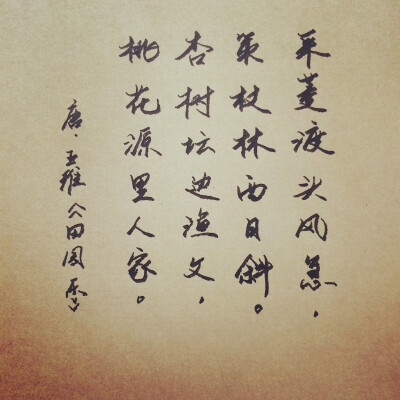 采菱渡头风急，
策杖林西日斜。
杏树坛边渔父，
桃花源里人家。
唐·王维《田园乐》